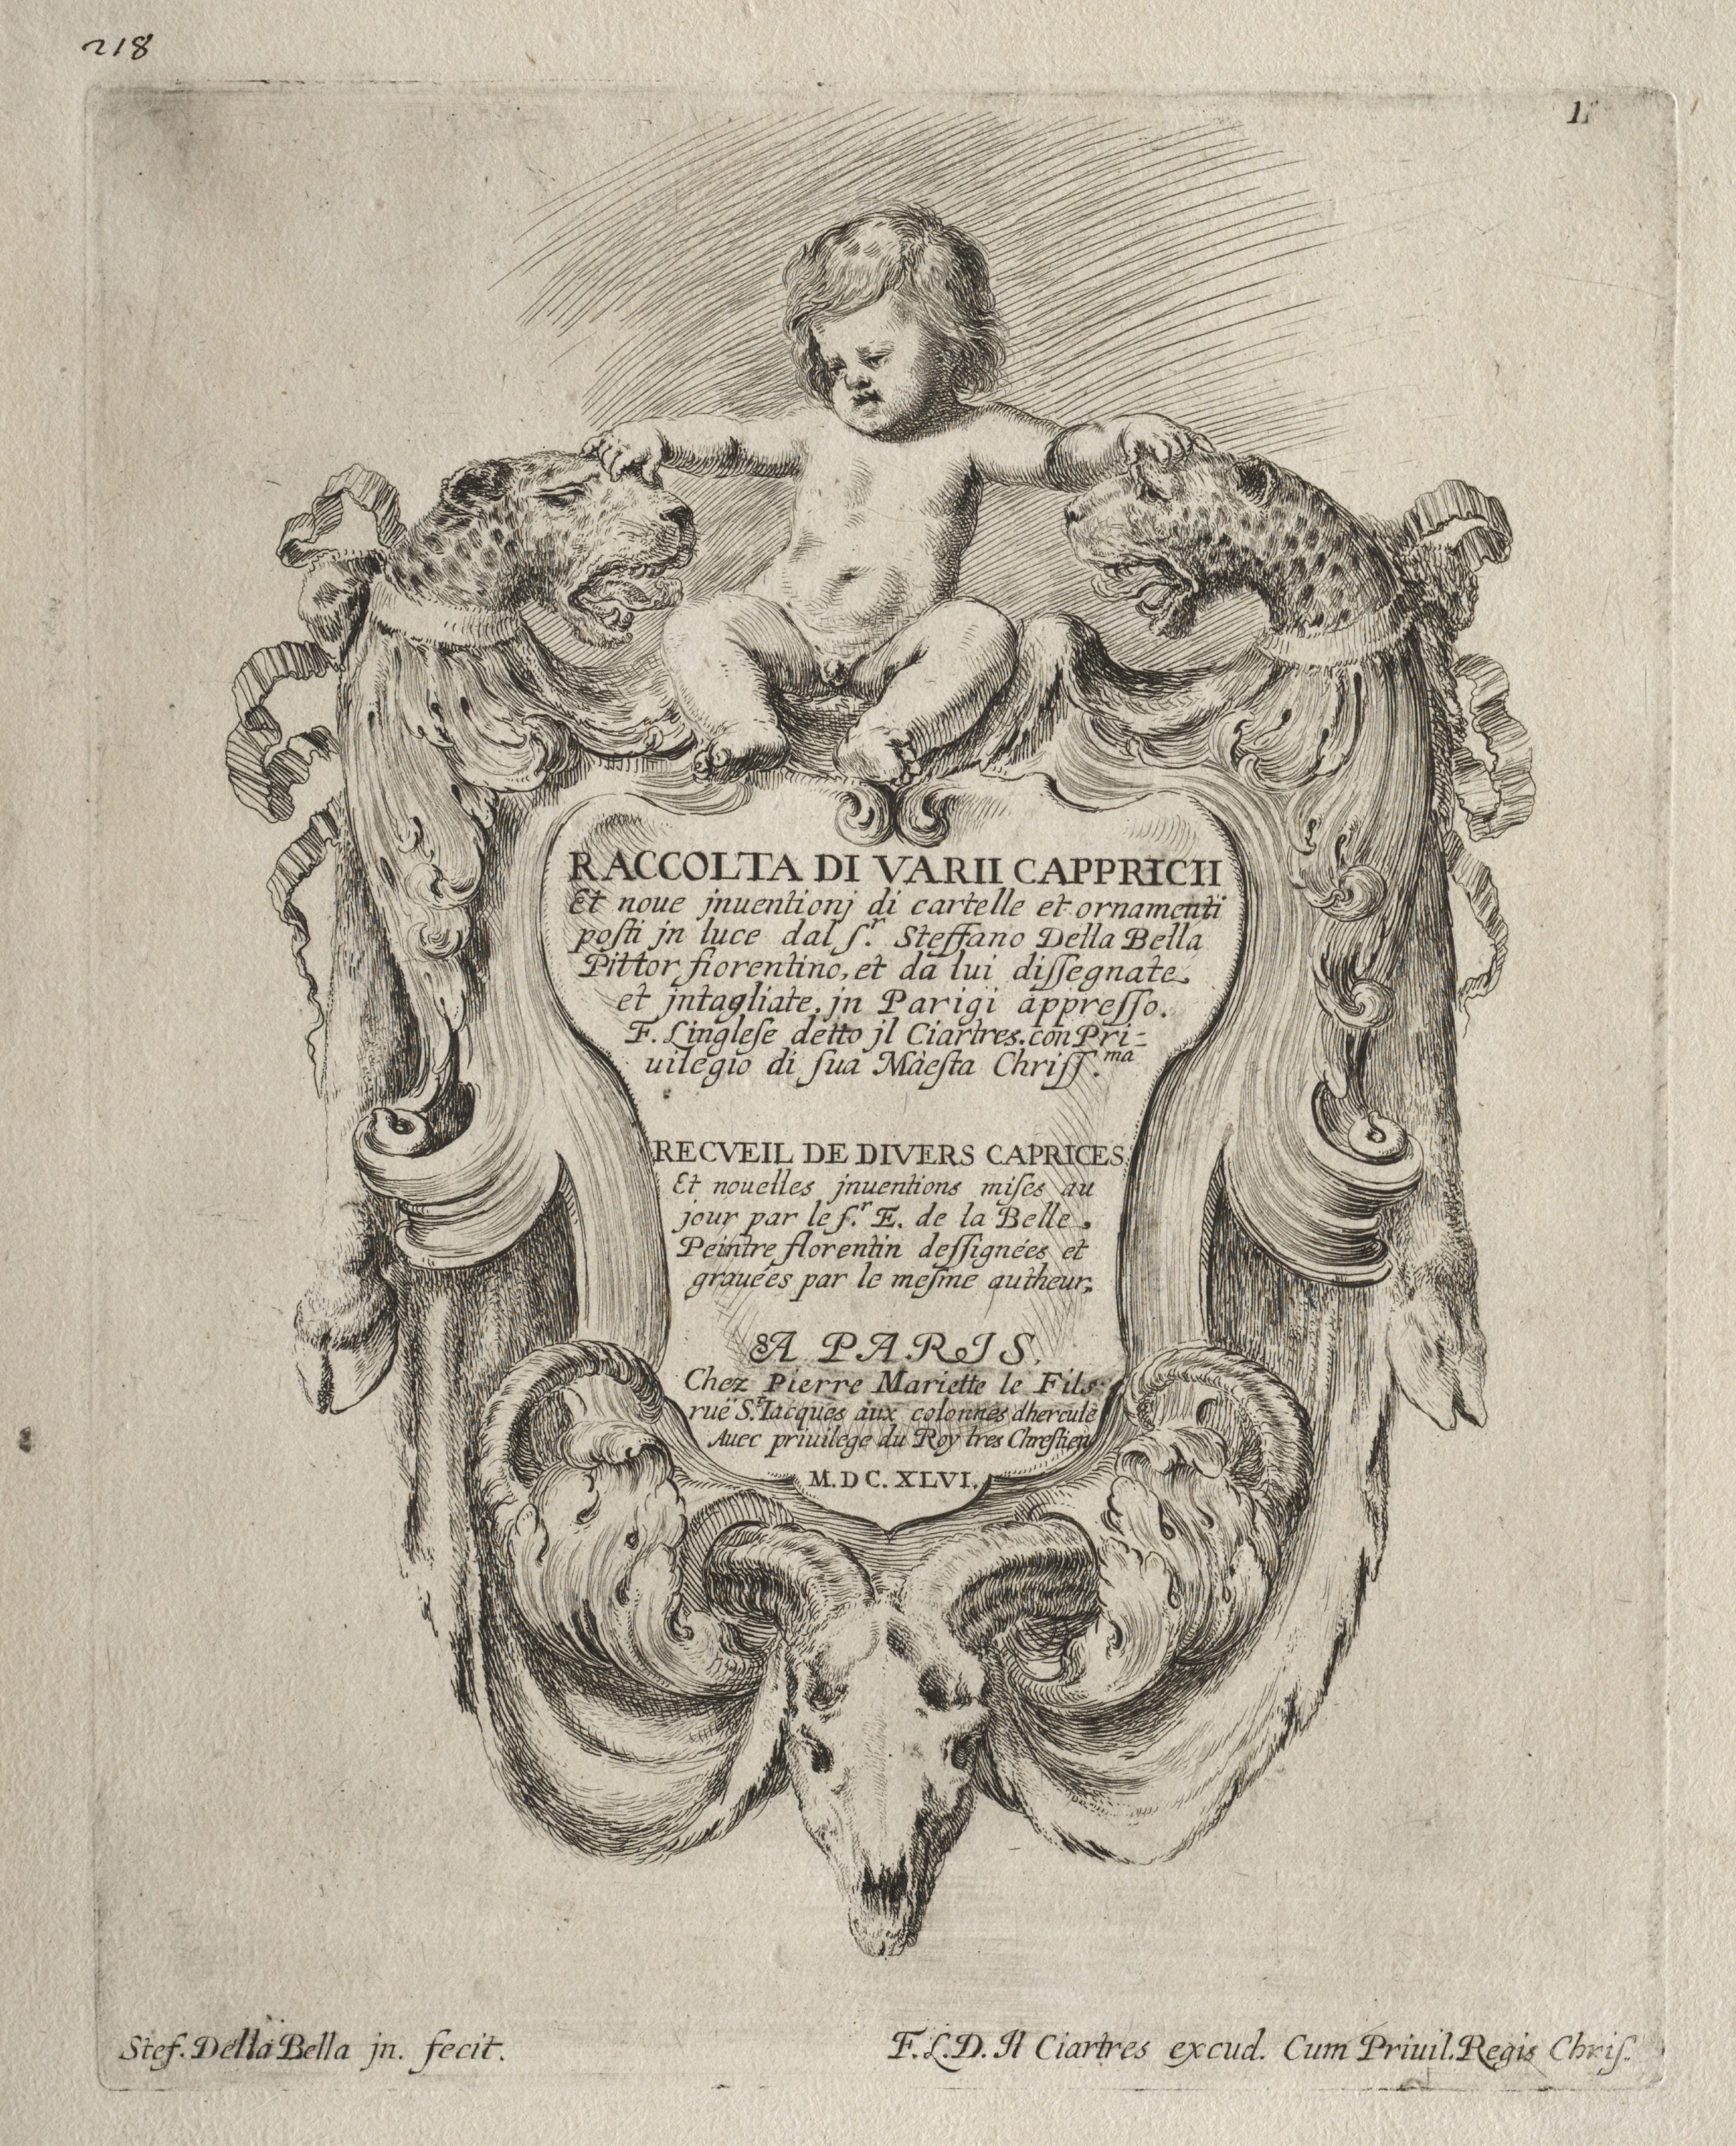 218
1
RACCOLTA DI VARII CAPPRICII
Et noue jnuentionj di cartelle et ornamenti
posti jn luce dal ſ.r Steffano Della Bella
Pittor fiorentino, et da lui diſſegnate
et jntagliate, jn Parigi appreſſo.
F. Lingleſe detto jl Ciartres. con Pri-
uilegio di ſua Maeſta Chriſſ.ma
RECVEIL DE DIVERS CAPRICES
Et nouelles jnuentions miſes au
jour par le ſ.r E. de la Belle,
Peintre florentin deſſignées et
grauées par le meſme autheur,
A PARIS,
Chez Pierre Mariette le Fils
rue St. Iacques aux colonnes dhercule
Auec priuilege du Roy tres Chreſtien
M.DC.XLVI.
Stef. Della Bella jn. fecit.
F.L.D. Il Ciartres excud. Cum Priuil. Regis Chriſ.